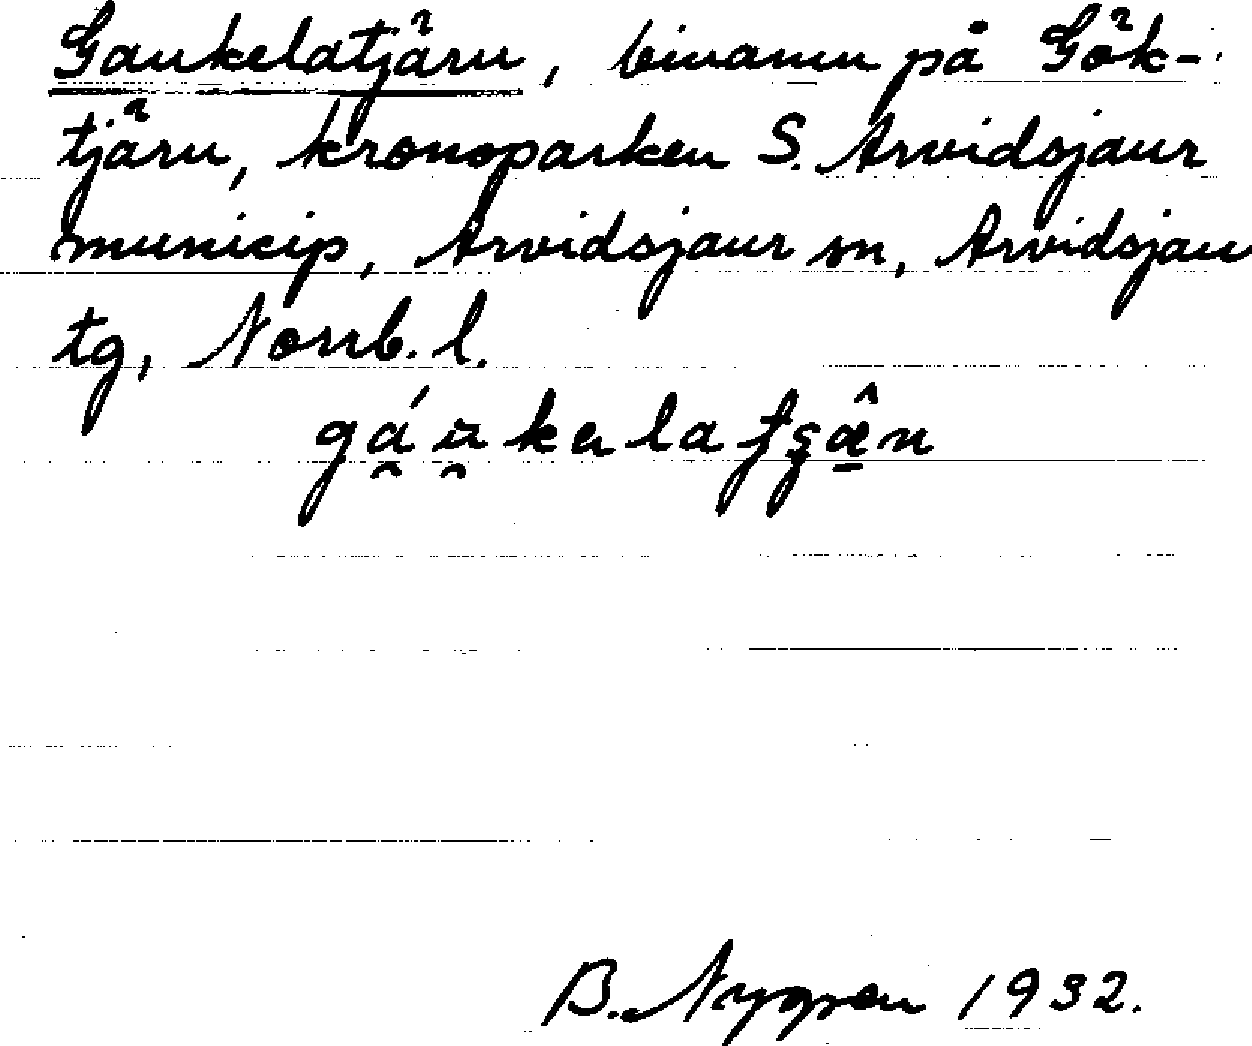 Gaukelatjärn, binamn på Gök-
tjärn, kronoparken S. Arvidsjaur
municip, Arvidsjaur sn, Arvidsjau
tg, Norrb. l.
B. Nygren 1932.